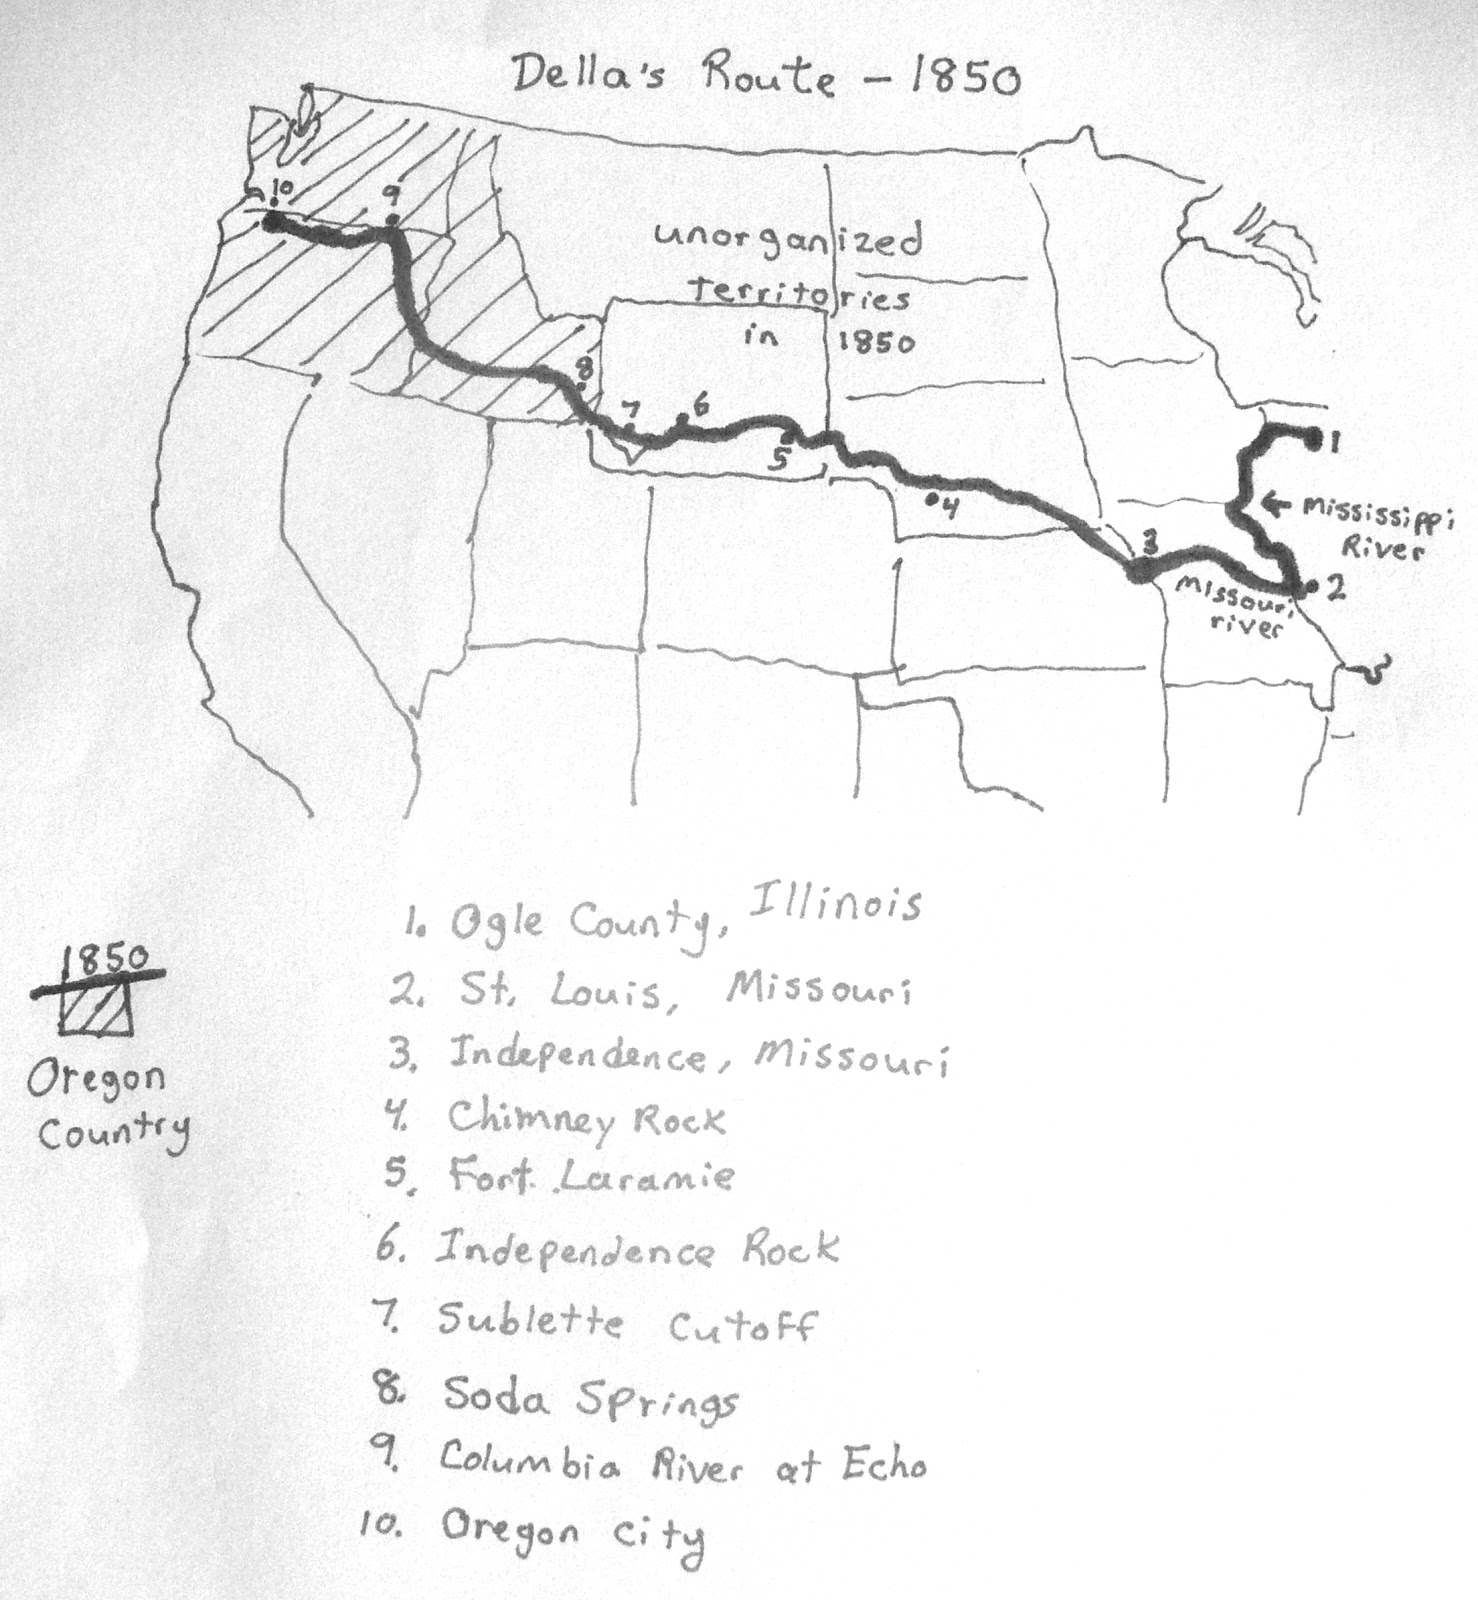 Della's Route - 1850
10
9
unorganized
territories
in 1850
8
7
6
5
4
1
← Mississippi
River
3
2
Missouri
river
1. Ogle County, Illinois
2. St. Louis, Missouri
3. Independence, Missouri
4. Chimney Rock
5. Fort Laramie
6. Independence Rock
7. Sublette Cutoff
8. Soda Springs
9. Columbia River at Echo
10. Oregon City
1850
Oregon
Country